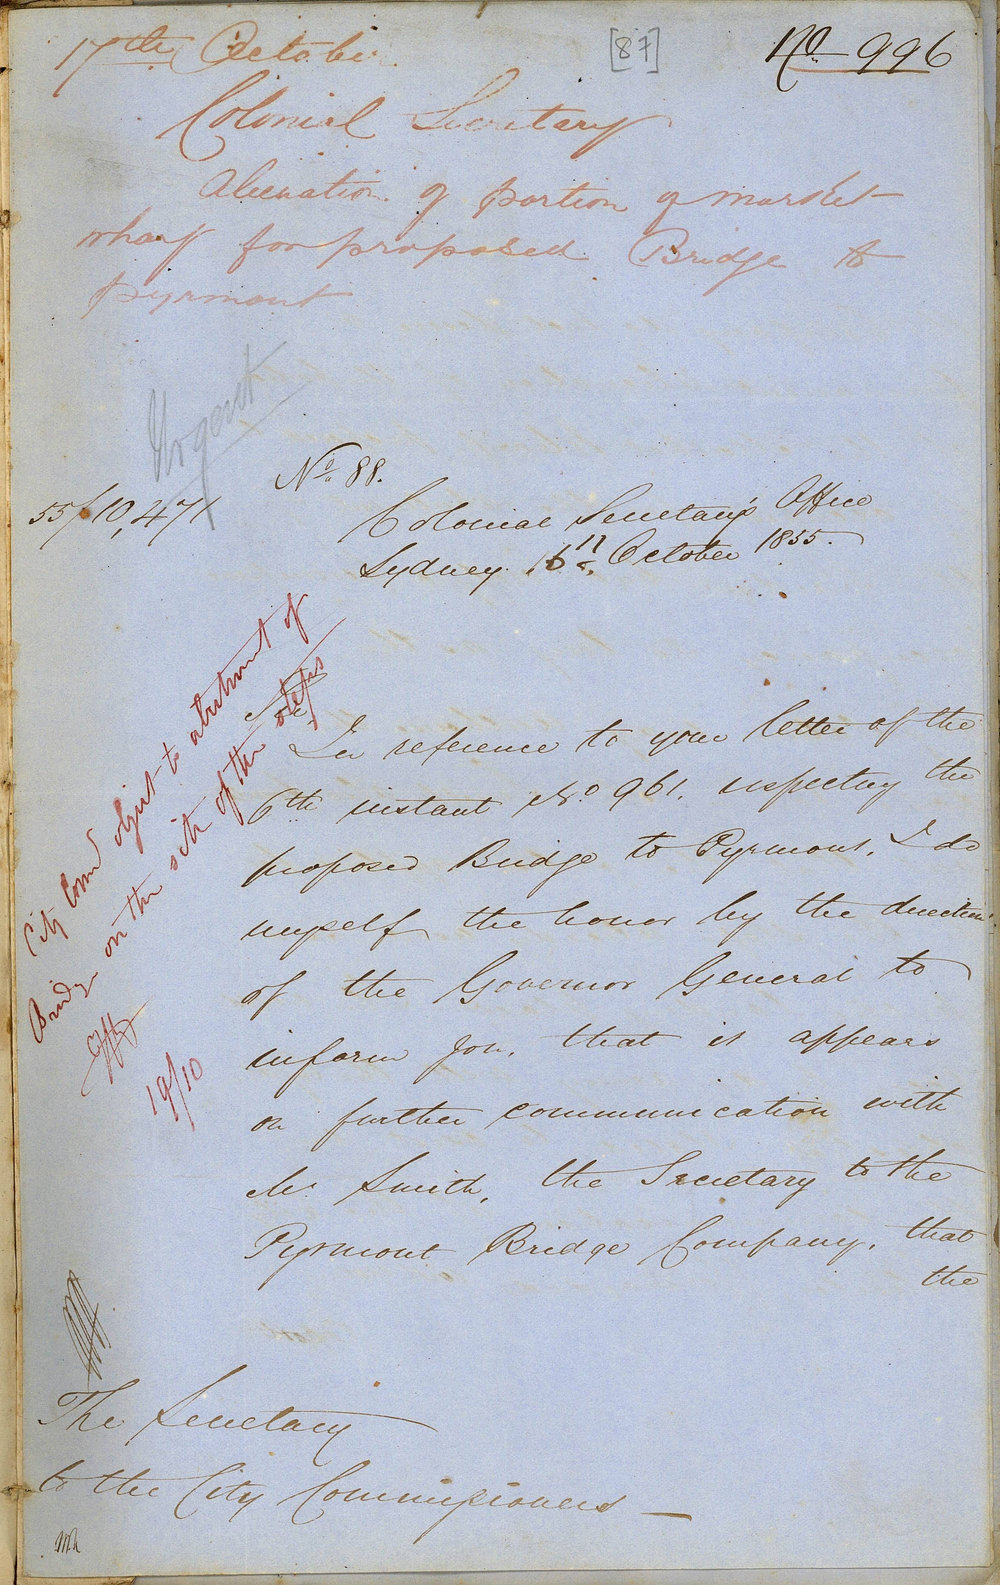 17th October.
[87]
No 996
Colonial Secretary
Alienation of portion of market
wharf for proposed Bridge to
pyrmont
Urgent
No. 88.
55/10,471
Colonial Secretary's Office
Sydney 16th October 1855.
City Comrs object to abutment of
Bridge on the site of the steps
19/10
Sir,
In reference to your letter of the
6th instant No 961, respecting the
proposed Bridge to Pyrmont, I do
myself the honor by the direction
of the Governor General to
inform you, that it appears
on further communication with
Mr Smith, the Secretary to the
Pyrmont Bridge Company, that
the
The Secretary
to the City Commissioners